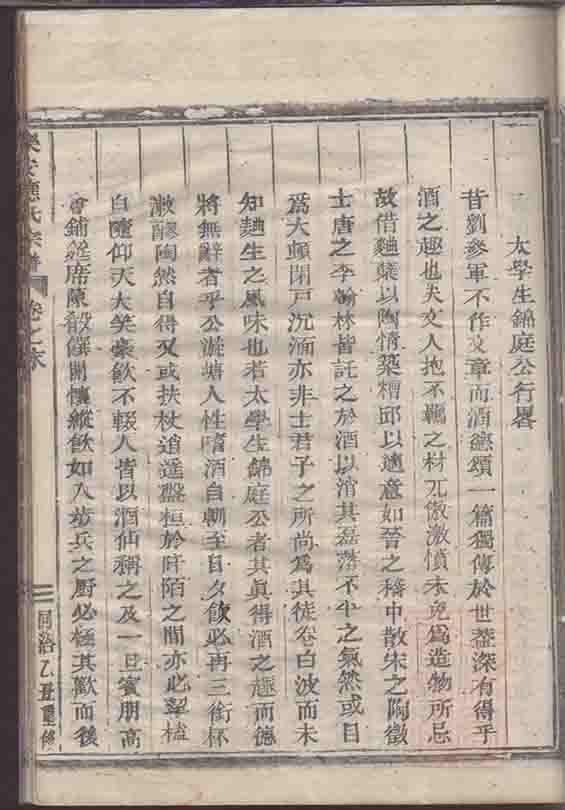 太學生錦庭公行畧
昔劉參軍不作文章而酒德頌一篇獨傳於世葢深有得乎
酒之趣也夫文人抱不羈之材兀傲激憤未免爲造物所忌
故借麯糵以陶情築糟邱以適意如晉之稽中散宋之陶徵
士唐之李翰林皆託之於酒以消其磊落不平之氣然或目
爲大頓閉戸沉湎亦非士君子之所尚爲其徒卷白波而未
知麯生之風味也若太學生錦庭公者其眞得酒之趣而德
將無醉者乎公漇塘人性嗜酒自朝至日夕飲必再三銜杯
漱醪陶然自得又或扶杖逍遥盤桓於阡陌之間亦必挈榼
自隨仰天大笑豪飲不輟人皆以酒仙稱之及一旦賓朋高
會鋪筵席陳殽饌開懷縱飲如入步兵之厨必極其歡而後
安應氏宗譜
卷之末
同治乙丑重修